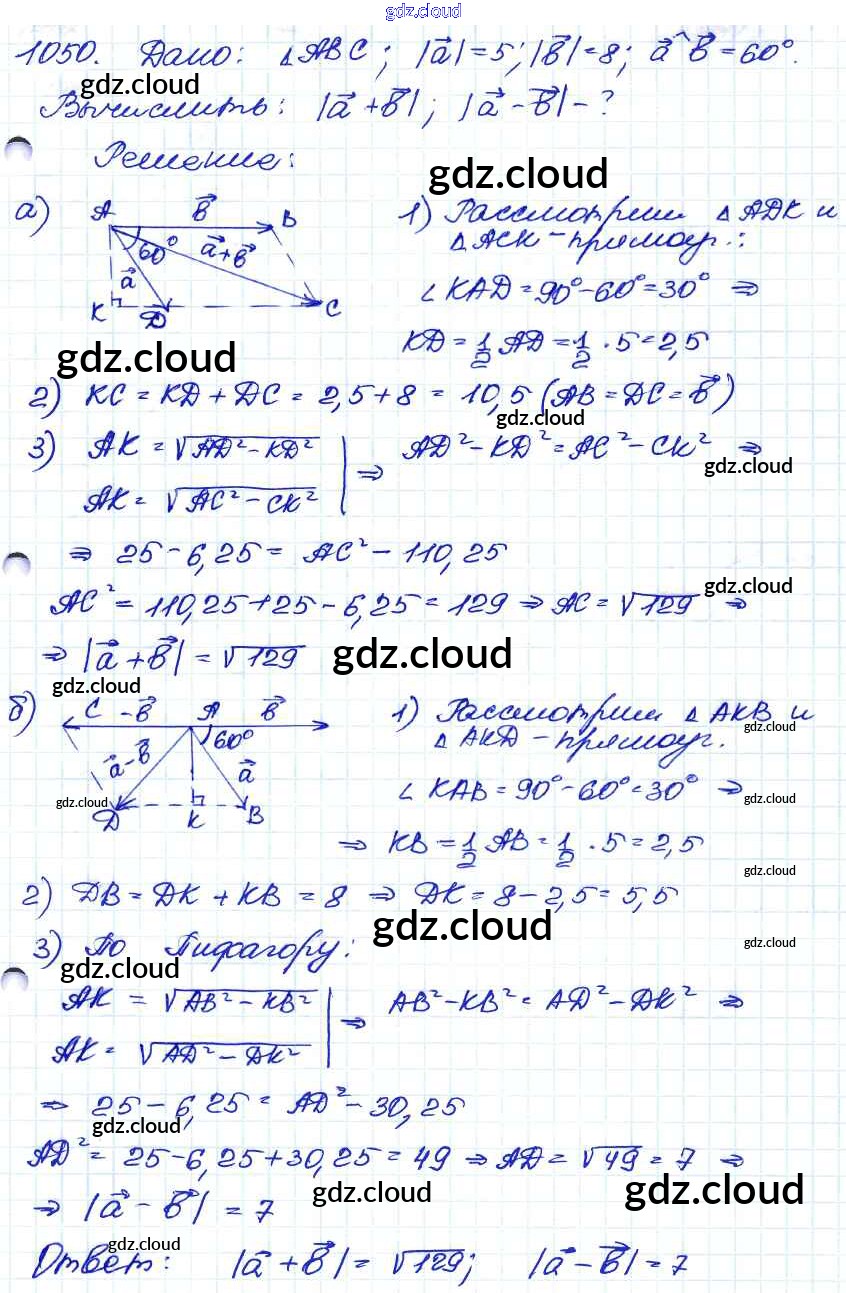 gdz.cloud
1050. Дано: △ABC; |a⃗|=5; |b⃗|=8; a⃗^b⃗=60°.
gdz.cloud
Вычислить: |a⃗+b⃗|; |a⃗-b⃗|-?
Решение:
gdz.cloud
а) A b⃗ B
60° a⃗+b⃗
a⃗
K D C
1) Рассмотрим △ADK и
△ACK-прямоуг.:
∠KAD=90°-60°=30° ⇒
KD=1/2 AD=1/2·5=2,5
gdz.cloud
2) KC=KD+DC=2,5+8=10,5 (AB=DC=b⃗)
gdz.cloud
3) AK=√AD²-KD² | ⇒ AD²-KD²=AC²-CK² ⇒
gdz.cloud
AK=√AC²-CK²
⇒ 25-6,25=AC²-110,25
gdz.cloud
AC²=110,25+25-6,25=129 ⇒ AC=√129 ⇒
⇒ |a⃗+b⃗|=√129
gdz.cloud
gdz.cloud
б) C -b⃗ A b⃗
60°
a⃗-b⃗ a⃗
gdz.cloud
D K B
1) Рассмотрим △AKB и
gdz.cloud
△AKD-прямоуг.
∠KAB=90°-60°=30° ⇒
gdz.cloud
⇒ KB=1/2 AB=1/2·5=2,5
gdz.cloud
2) DB=DK+KB=8 ⇒ DK=8-2,5=5,5
gdz.cloud
3) По Пифагору:
gdz.cloud
gdz.cloud
AK=√AB²-KB² | ⇒ AB²-KB²=AD²-DK² ⇒
AK=√AD²-DK²
⇒ 25-6,25=AD²-30,25
gdz.cloud
AD²=25-6,25+30,25=49 ⇒ AD=√49=7 ⇒
⇒ |a⃗-b⃗|=7
gdz.cloud
gdz.cloud
gdz.cloud
Ответ: |a⃗+b⃗|=√129; |a⃗-b⃗|=7